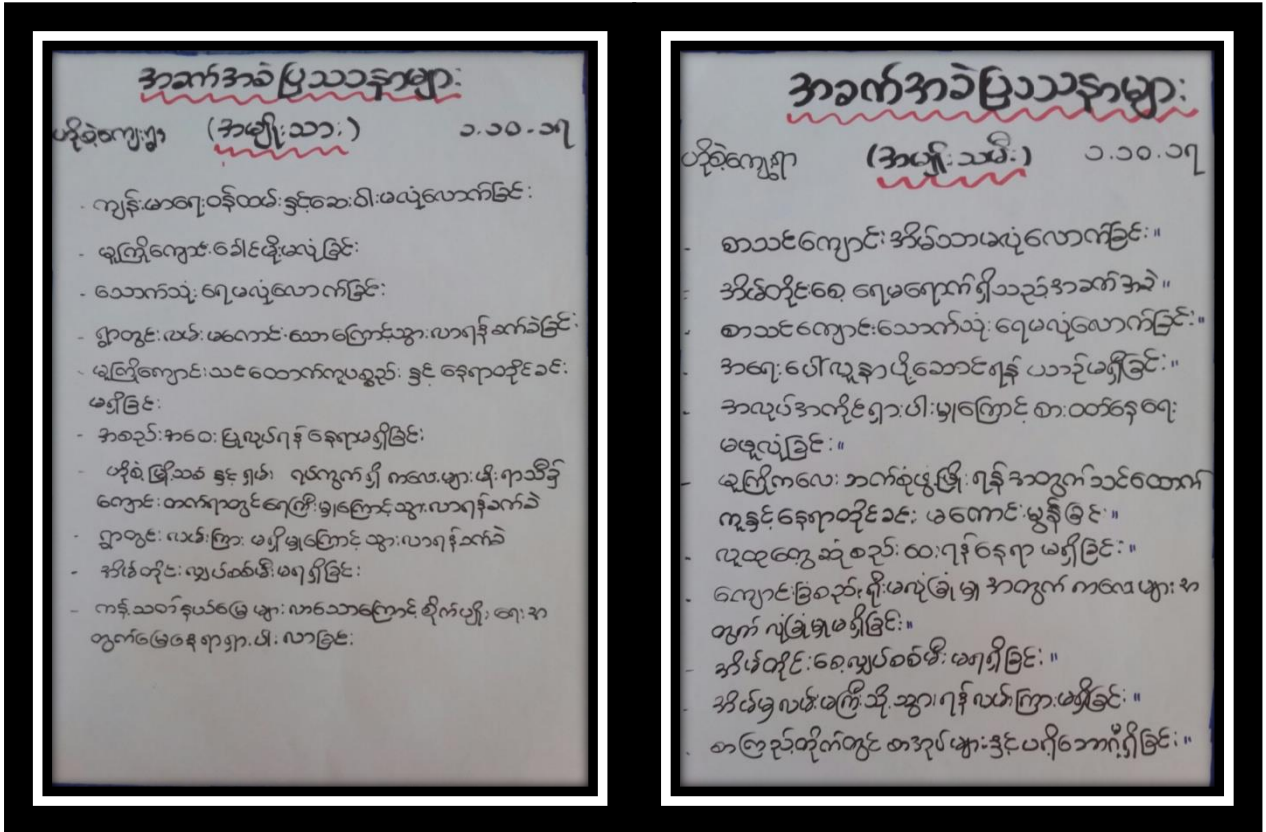 အခက်အခဲပြဿနာများ
ဟိုစံကျေးရွာ (အမျိုးသား) ၁.၁၀.၁၇
- ကျန်းမာရေးဝန်ထမ်းနှင့်ဆေးဝါးမလုံလောက်ခြင်း
- မူကြိုကျောင်းခေါင်မိုးမလုံခြင်း
- သောက်သုံးရေမလုံလောက်ခြင်း
- ရွာတွင်းလမ်းမကောင်းသောကြောင့်သွားလာရန်ခက်ခဲခြင်း
- မူကြိုကျောင်းသင်ထောက်ကူပစ္စည်းနှင့် နေရာထိုင်ခင်း
မရှိခြင်း
- အစည်းအဝေးပြုလုပ်ရန်နေရာမရှိခြင်း
ဟိုစံမြို့သစ်နှင့်ရှမ်းရပ်ကွက်ရှိ ကလေးများမိုးရာသီ၌
ကျောင်းတက်ရာတွင်ရေကြီးမှုကြောင့်သွားလာရန်ခက်ခဲ
- ရွာတွင်းလမ်းကြားမရှိမှုကြောင့်သွားလာရန်ခက်ခဲ
- အိမ်တိုင်းလျှပ်စစ်မီးမရရှိခြင်း
- ကန့်သတ်နယ်မြေများလာသောကြောင့်စိုက်ပျိုးရေးအ
တွက်မြေနေရာရှားပါးလာခြင်း
အခက်အခဲပြဿနာများ
ဟိုစံကျေးရွာ (အမျိုးသမီး) ၁.၁၀.၁၇
- စာသင်ကျောင်းအိမ်သာမလုံလောက်ခြင်း။
- အိမ်တိုင်းစေ့ ရေမရောက်ရှိသည့်အခက်အခဲ။
- စာသင်ကျောင်းသောက်သုံးရေမလုံလောက်ခြင်း။
- အရေးပေါ်လူနာပို့ဆောင်ရန် ယာဉ်မရှိခြင်း။
- အလုပ်အကိုင်ရှားပါးမှုကြောင့် စားဝတ်နေရေး
မဖူလုံခြင်း။
- မူကြိုကလေးဘက်စုံဖွံ့ဖြိုးရန်အတွက်သင်ထောက်
ကူနှင့်နေရာထိုင်ခင်းမကောင်းမွန်ခြင်း။
- လူထုတွေ့ဆုံစည်းဝေးရန်နေရာမရှိခြင်း။
- ကျောင်းခြံစည်းရိုးမလုံခြုံမှုအတွက် ကလေးများအ
တွက် လုံခြုံမှုမရှိခြင်း။
- အိမ်တိုင်းစေ့လျှပ်စစ်မီးမရရှိခြင်း။
- အိမ်မှလမ်းမကြီးသို့သွားရန်လမ်းကြားမရှိခြင်း။
- စာကြည့်တိုက်တွင် စာအုပ်များနှင့်ပရိဘောဂမရှိခြင်း။